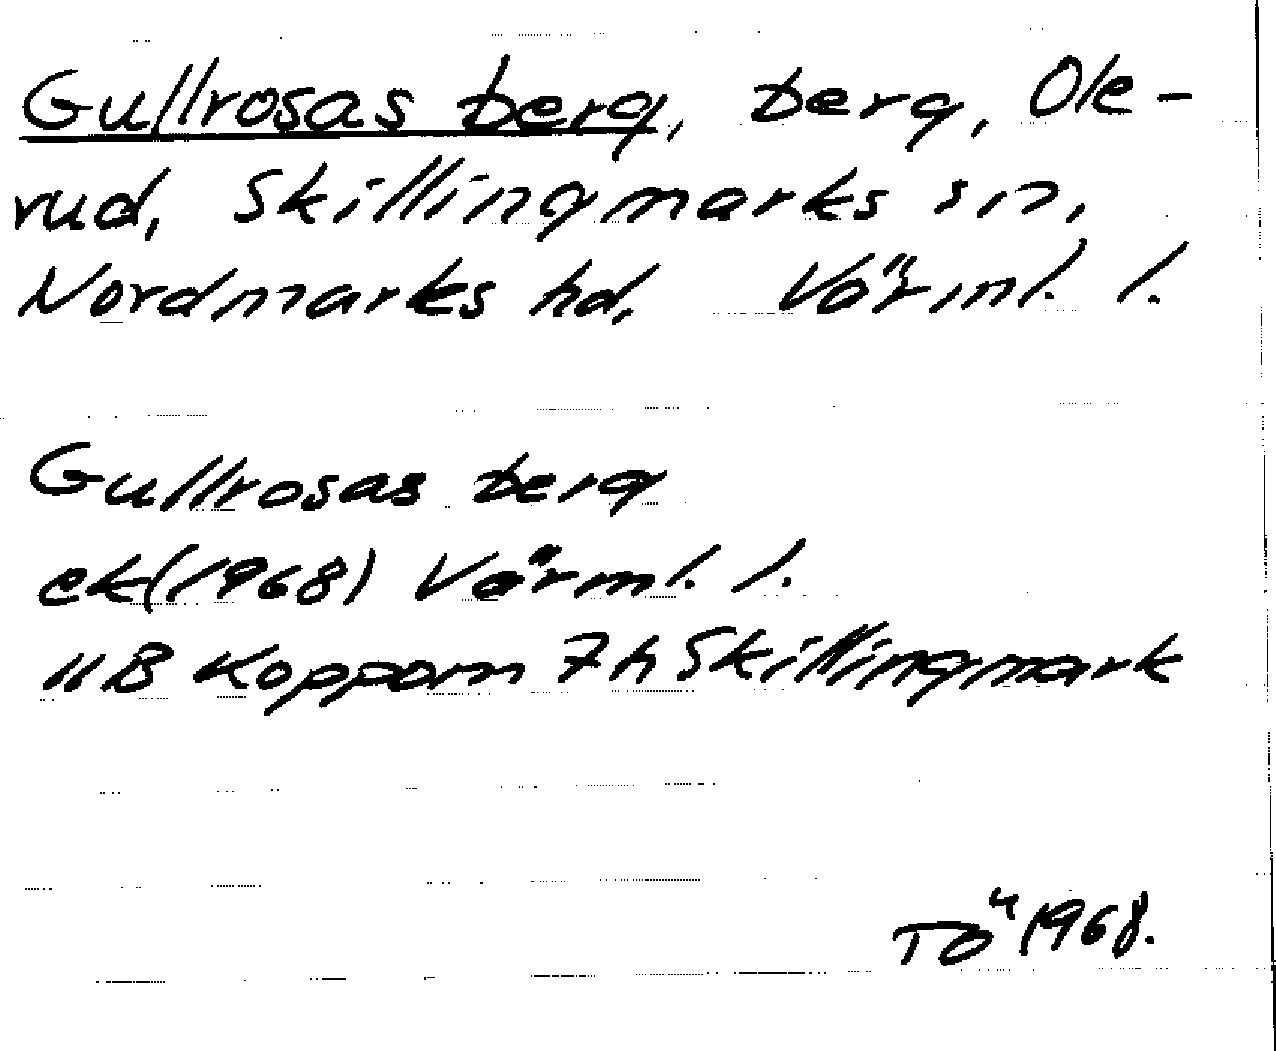 Gullrosas berg, berg, Ole-
rud, Skillingmarks sn,
Nordmarks hd. Värml. l.
Gullrosas berg
ek(1968) Värml. l.
11B Koppom 7h Skillingmark
TÖ 1968.